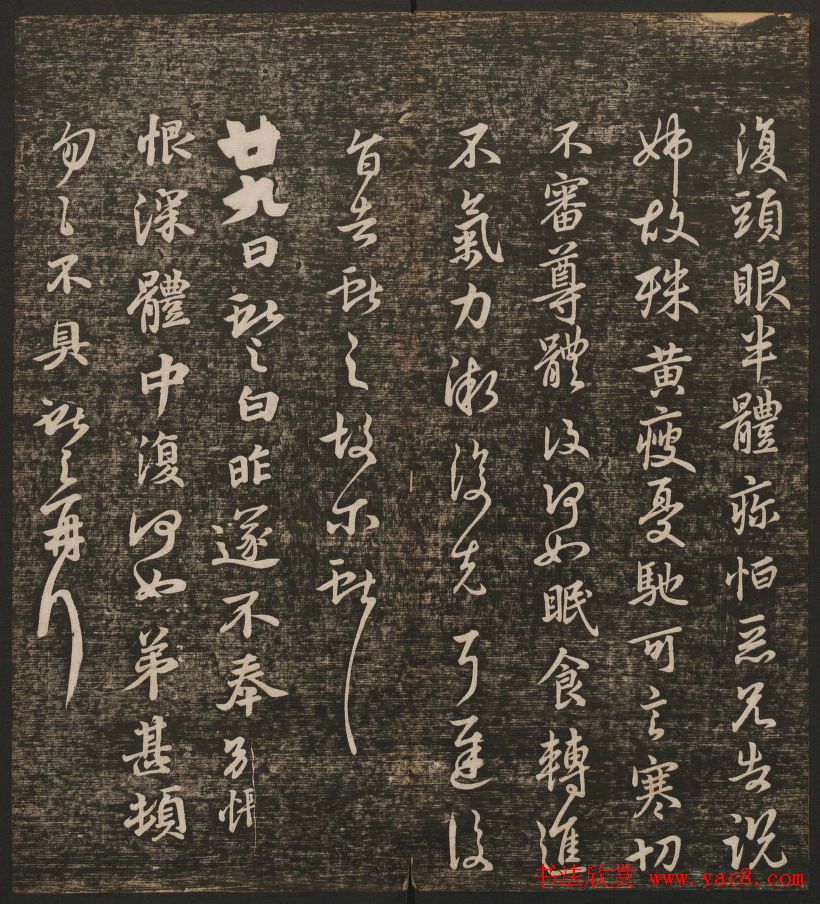 復頭眼半體疼怕惡兄告説
姊故殊黄瘦憂馳可言寒切
不審尊體復何如眠食轉進
不氣力漸復先耳遲復
告獻之故尔獻
廿九日獻之白昨遂不奉別悵
恨深體中復何如弟甚頓
匆匆不具獻之再
书法欣赏 www.yac8.com